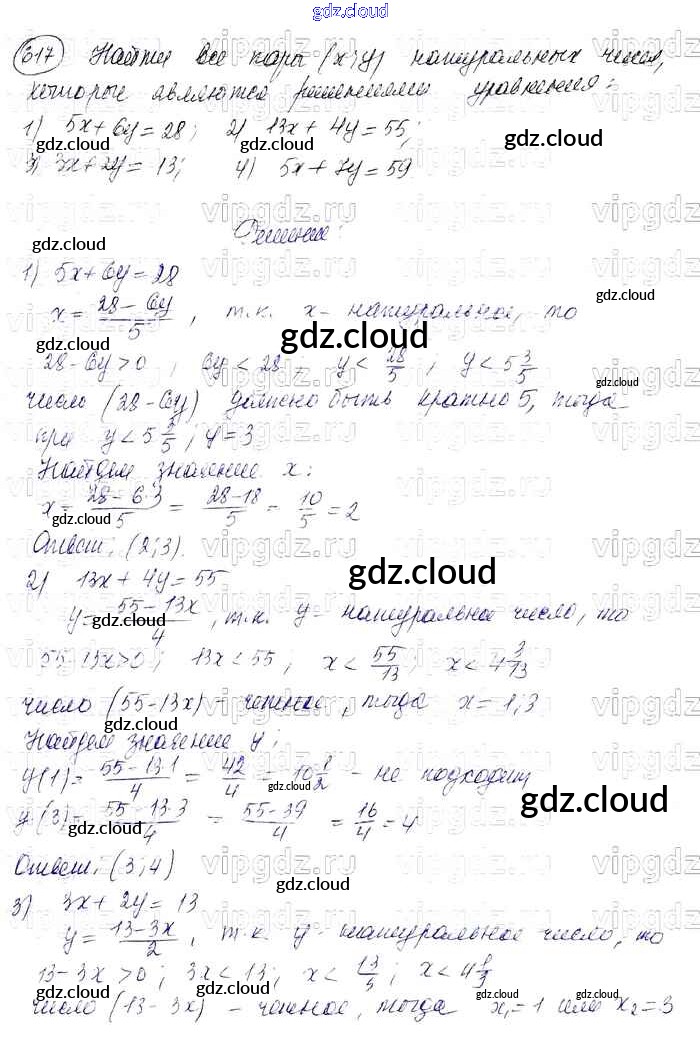 gdz.cloud
617 Найти все пары (x; y) натуральных чисел,
которые являются решениями уравнения:
1) 5x + 6y = 28; 2) 13x + 4y = 55;
gdz.cloud
3) 3x + 2y = 13; 4) 5x + 7y = 59
vipgdz.ru vipgdz.ru vipgdz.ru
Решение:
gdz.cloud
1) 5x + 6y = 28
gdz.cloud
x = 28 - 6y / 5, т.к. x - натуральное, то
gdz.cloud
28 - 6y > 0, 6y < 28; y < 28/5; y < 5 3/5
gdz.cloud
число (28 - 6y) должно быть кратно 5, тогда
при y < 5 3/5; y = 3
gdz.cloud
Найдем значение x:
x = 28 - 6·3 / 5 = 28 - 18 / 5 = 10/5 = 2
gdz.cloud gdz.cloud
Ответ: (2; 3).
gdz.cloud
2) 13x + 4y = 55
y = 55 - 13x / 4, т.к. y - натуральное число, то
gdz.cloud
55 - 13x > 0; 13x < 55; x < 55/13; x < 4 3/13
gdz.cloud
число (55 - 13x) - четное, тогда x = 1; 3
gdz.cloud
Найдем значение y:
y(1) = 55 - 13·1 / 4 = 42/4 = 10 1/2 - не подходит
gdz.cloud
gdz.cloud
y(3) = 55 - 13·3 / 4 = 55 - 39 / 4 = 16/4 = 4
gdz.cloud
Ответ: (3; 4)
gdz.cloud
3) 3x + 2y = 13
y = 13 - 3x / 2, т.к. y - натуральное число, то
gdz.cloud
13 - 3x > 0; 3x < 13; x < 13/3; x < 4 1/3
gdz.cloud
число (13 - 3x) - четное, тогда x₁ = 1 или x₂ = 3